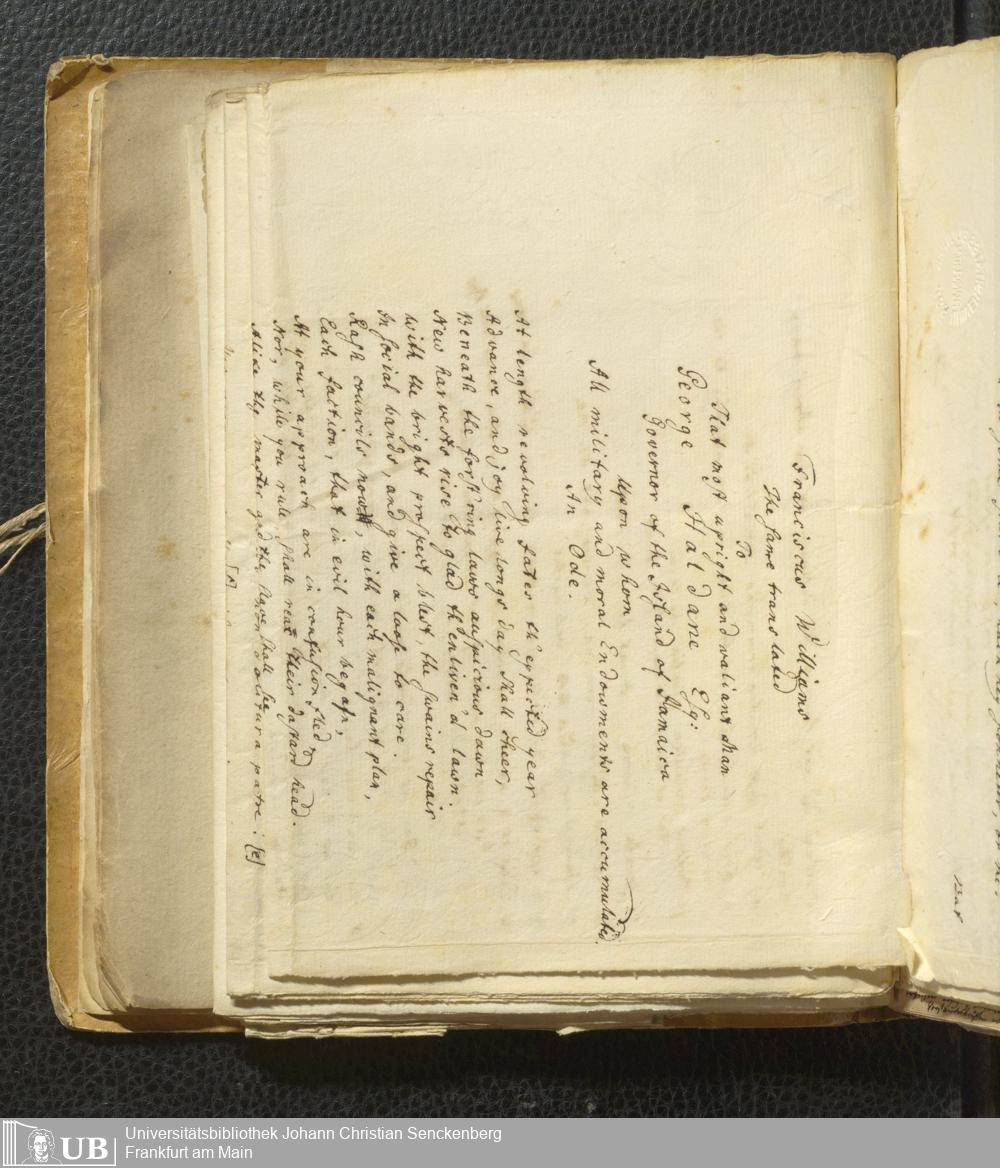 Franciscus Williams
The same translated
To
That most upright and valiant Man
George Haldane Esq:
Governor of the Island of Jamaica
Upon whom
All military and moral Endowments are accumulated.
An Ode.
At length revolving fates th'expected year
Advance, and joy live long day shall cheer,
Beneath the fost'ring laws auspicious dawn
New harvests rise to glad th'enliven'd lawn.
With the bright prospect blest, the swains repair
In social bands, and give a loose to care.
Rash councils now, with each malignant plan,
Each faction, that in evil hour began,
At your approach are in confusion fled,
Nor, while you rule shall rear their dastard head.
Alike the master and the slave shall see
a patre: [e]
[r]
Bar
Universitätsbibliothek Johann Christian Senckenberg
Frankfurt am Main
UB